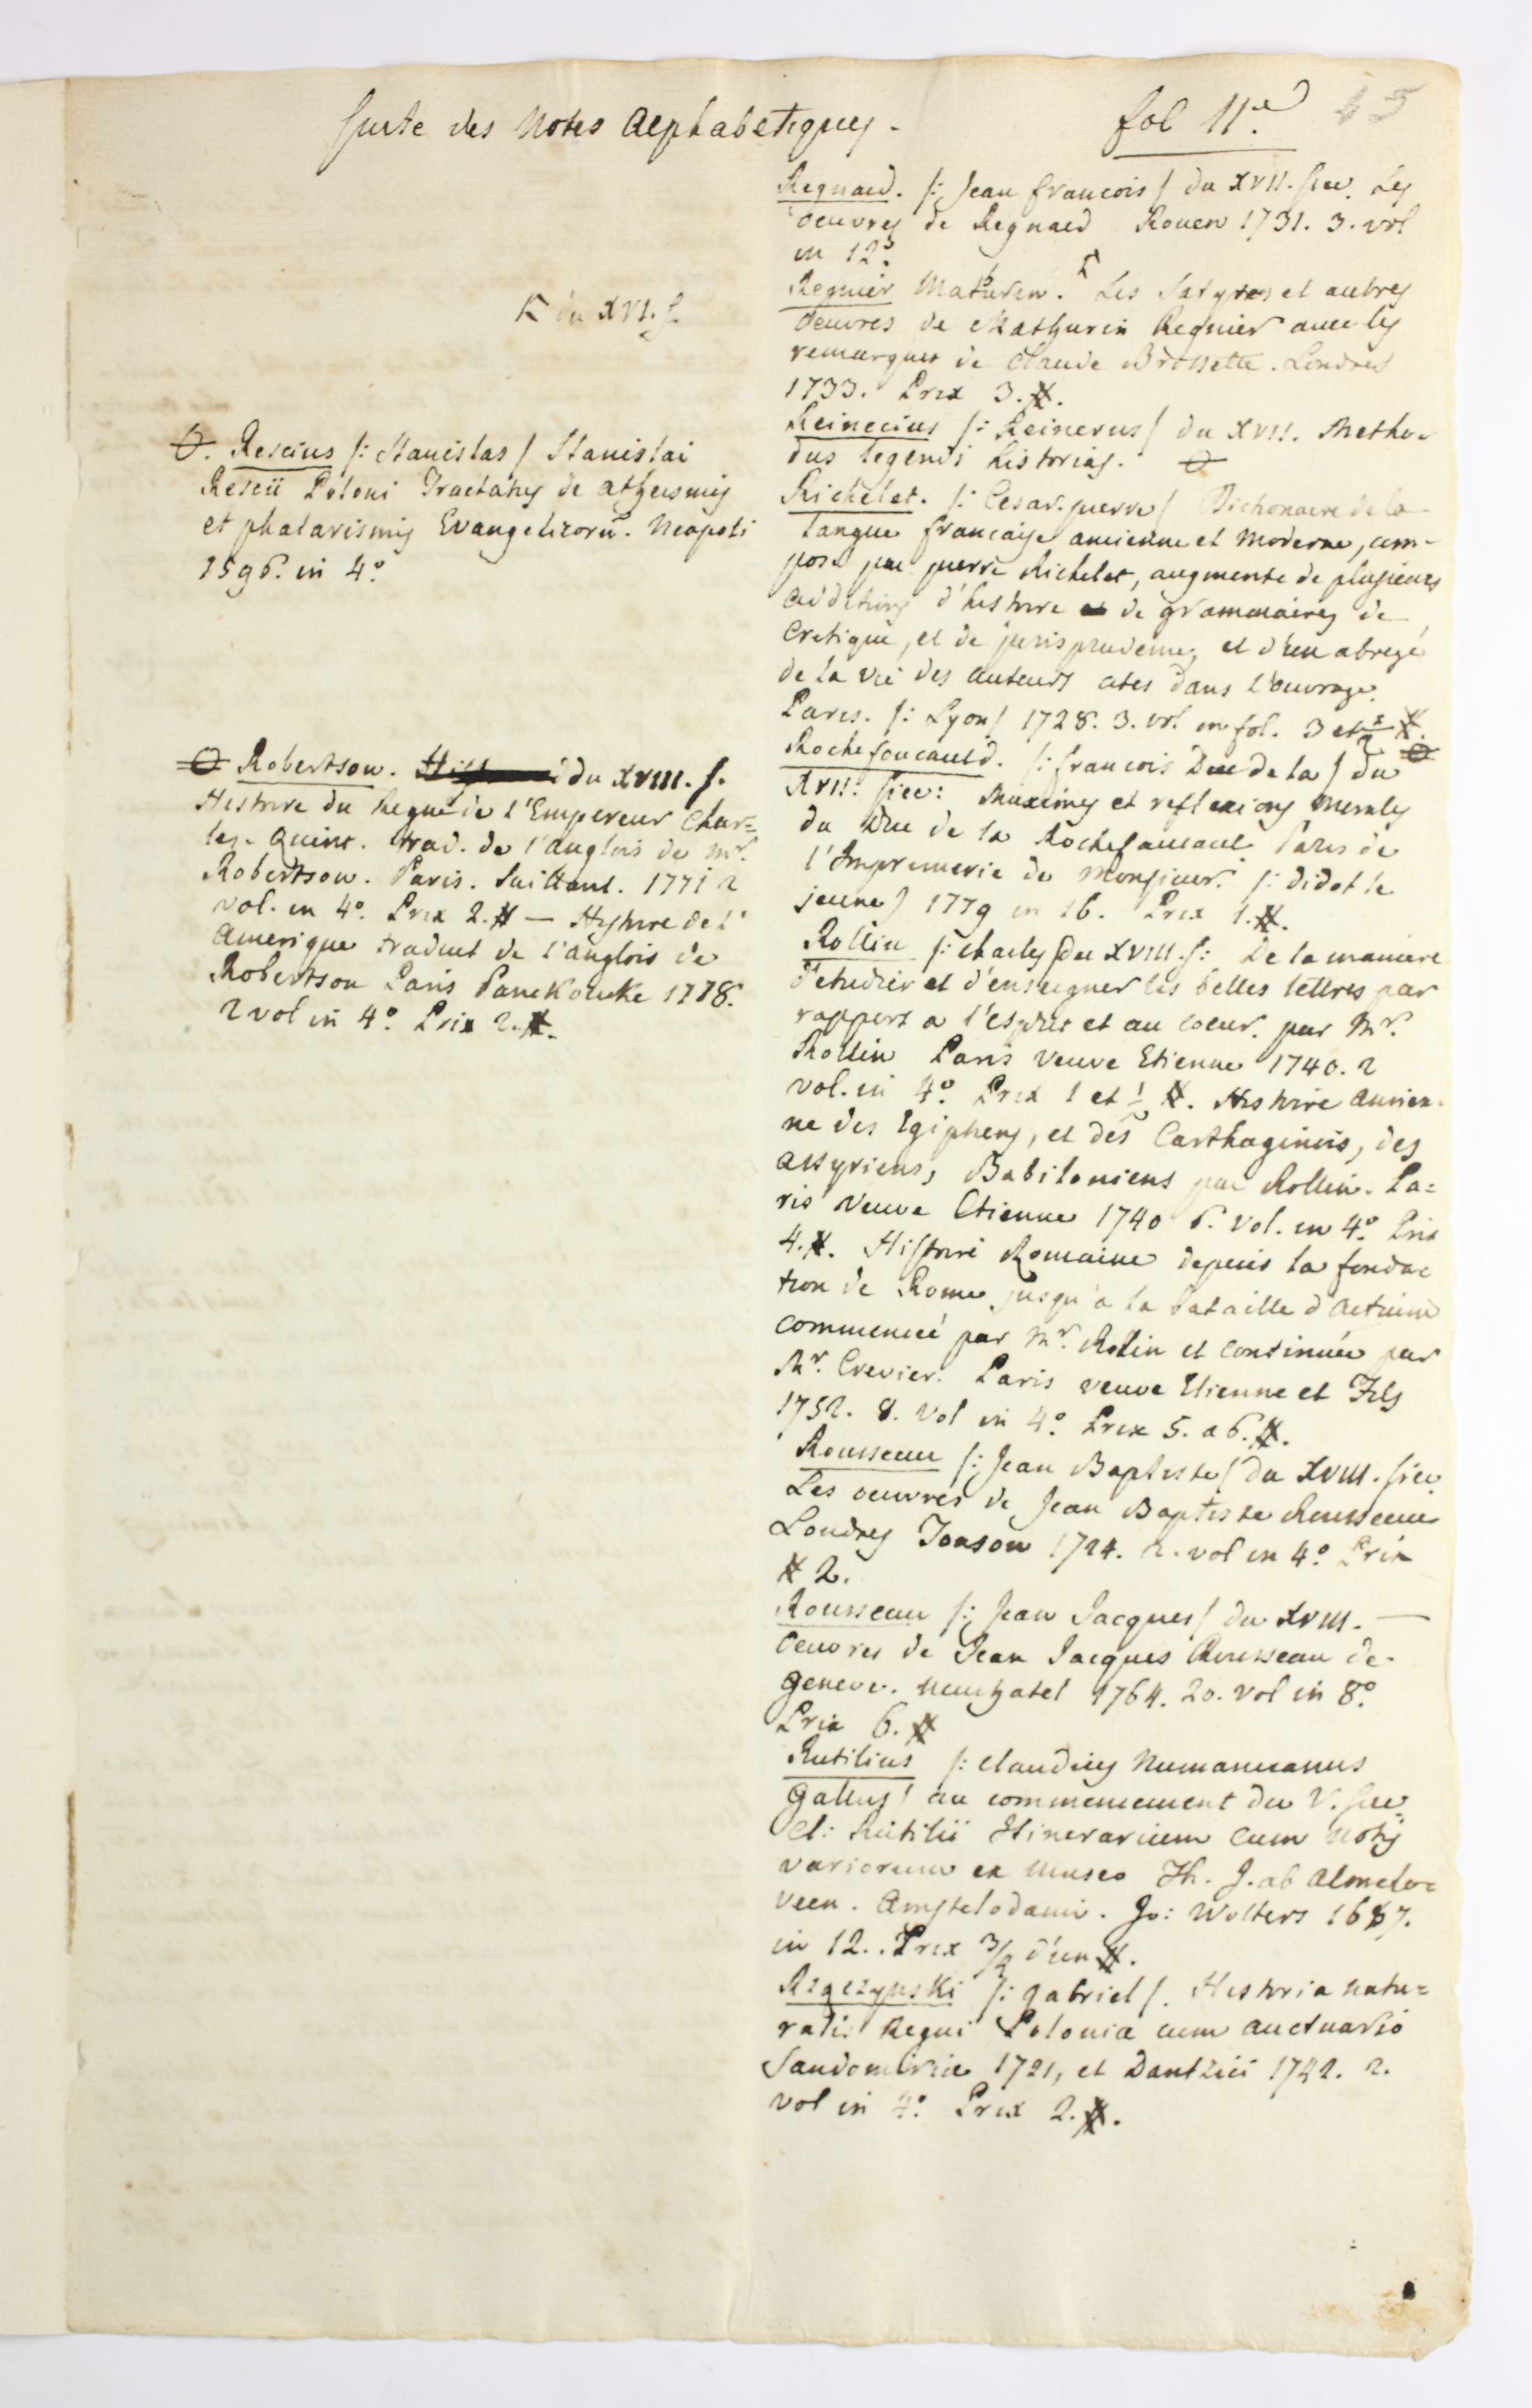 Suite des Notes Alphabetiques.
fol 11.e
45
Regnard. /: Jean francois / du XVII. siec. Les
oeuvres de Regnard Rouen 1731. 3. vol
in 12.o
Regnier Mathurin. Les Satyres et autres
Oeuvres de Mathurin Regnier avec les
remarques de Claude Brossette. Londres
1733. Prix 3. #.
Reinecius /: Reinerus / du XVII. Metho-
dus legendi historias.
Richelet. /: Cesar-pierre / Dictionaire de la
langue francaise ancienne et moderne, com-
posé par pierre Richelet, augmenté de plusieurs
additions d'histoire de grammaires de
Critique, et de jurisprudence, et d'un abregé
de la vie des auteurs cités dans l'ouvrage.
Paris. /: Lyon / 1728. 3. vol. in fol. 3 et 1/2 #.
Rochefoucauld. /: francois Duc de la / du
XVII. siec: Maximes et reflexions morales
du Duc de la Rochefaucault Paris de
l'Imprimerie de Monsieur. /: didot le
jeune / 1779 in 16. Prix 1. #.
Rollin /: Charles / du XVIII. s: De la maniere
d'etudier et d'enseigner les belles lettres par
rapport a l'esprit et au coeur. par Mr.
Rollin Paris veuve Etienne 1740. 2
vol. in 4.o Prix 1 et 1/2 #. Histoire ancien-
ne des Egiptiens, et des Carthaginois, des
assyriens, Babiloniens par Rollin. Pa=
ris Veuve Etienne 1740 6. vol. in 4.o Prix
4. #. Histoire Romaine depuis la fonda=
tion de Rome jusqu'a la bataille d'Actium
commencé par Mr. Rollin et continuée par
Mr. Crevier. Paris veuve Etienne et Fils
1752. 8. vol in 4.o Prix 5. a 6. #.
Rousseau /: Jean Baptiste / du XVIII. siec.
Les oeuvres de Jean Baptiste Rousseau
Londres Tonson 1724. 2. vol in 4.o Prix
# 2.
Rousseau /: Jean Jacques / du XVIII. —
Oeuvres de Jean Jacques Rousseau de
Geneve. Neuchatel 1764. 20. vol in 8.o
Prix 6. #
Rutilius /: Claudius Numancianus
Gallus / au commencement du V. siec.
Cl: Rutilii Itinerarium cum notis
variorum ex Museo Th. J. ab Almelo=
veen. Amstelodami. Jo: Wolters 1687.
in 12.. Prix d'un #.
Rzączynski /: Gabriel /. Historia natu=
ralis Regni Poloniæ cum auctuario
Sandomiriæ 1721, et Dantzici 1742. 2.
vol in 4.o Prix 2. #.
du XVI. s.
Rescius /: Stanislas / Stanislai
Rescii Poloni Tractatus de atheismis
et phalarismis Evangelicorū. Neapoli
1596. in 4.o
Robertson. du XVIII. s.
Histoire du Regne de l'Empereur Char=
les-Quint. trad. de l'anglois de Mr.
Robertson. Paris. Saillant. 1771 2
vol. in 4.o Prix 2. # — Histoire de l'
Amerique traduit de l'anglois de
Robertson Paris Panckoucke 1778.
2 vol in 4.o Prix 2. #.